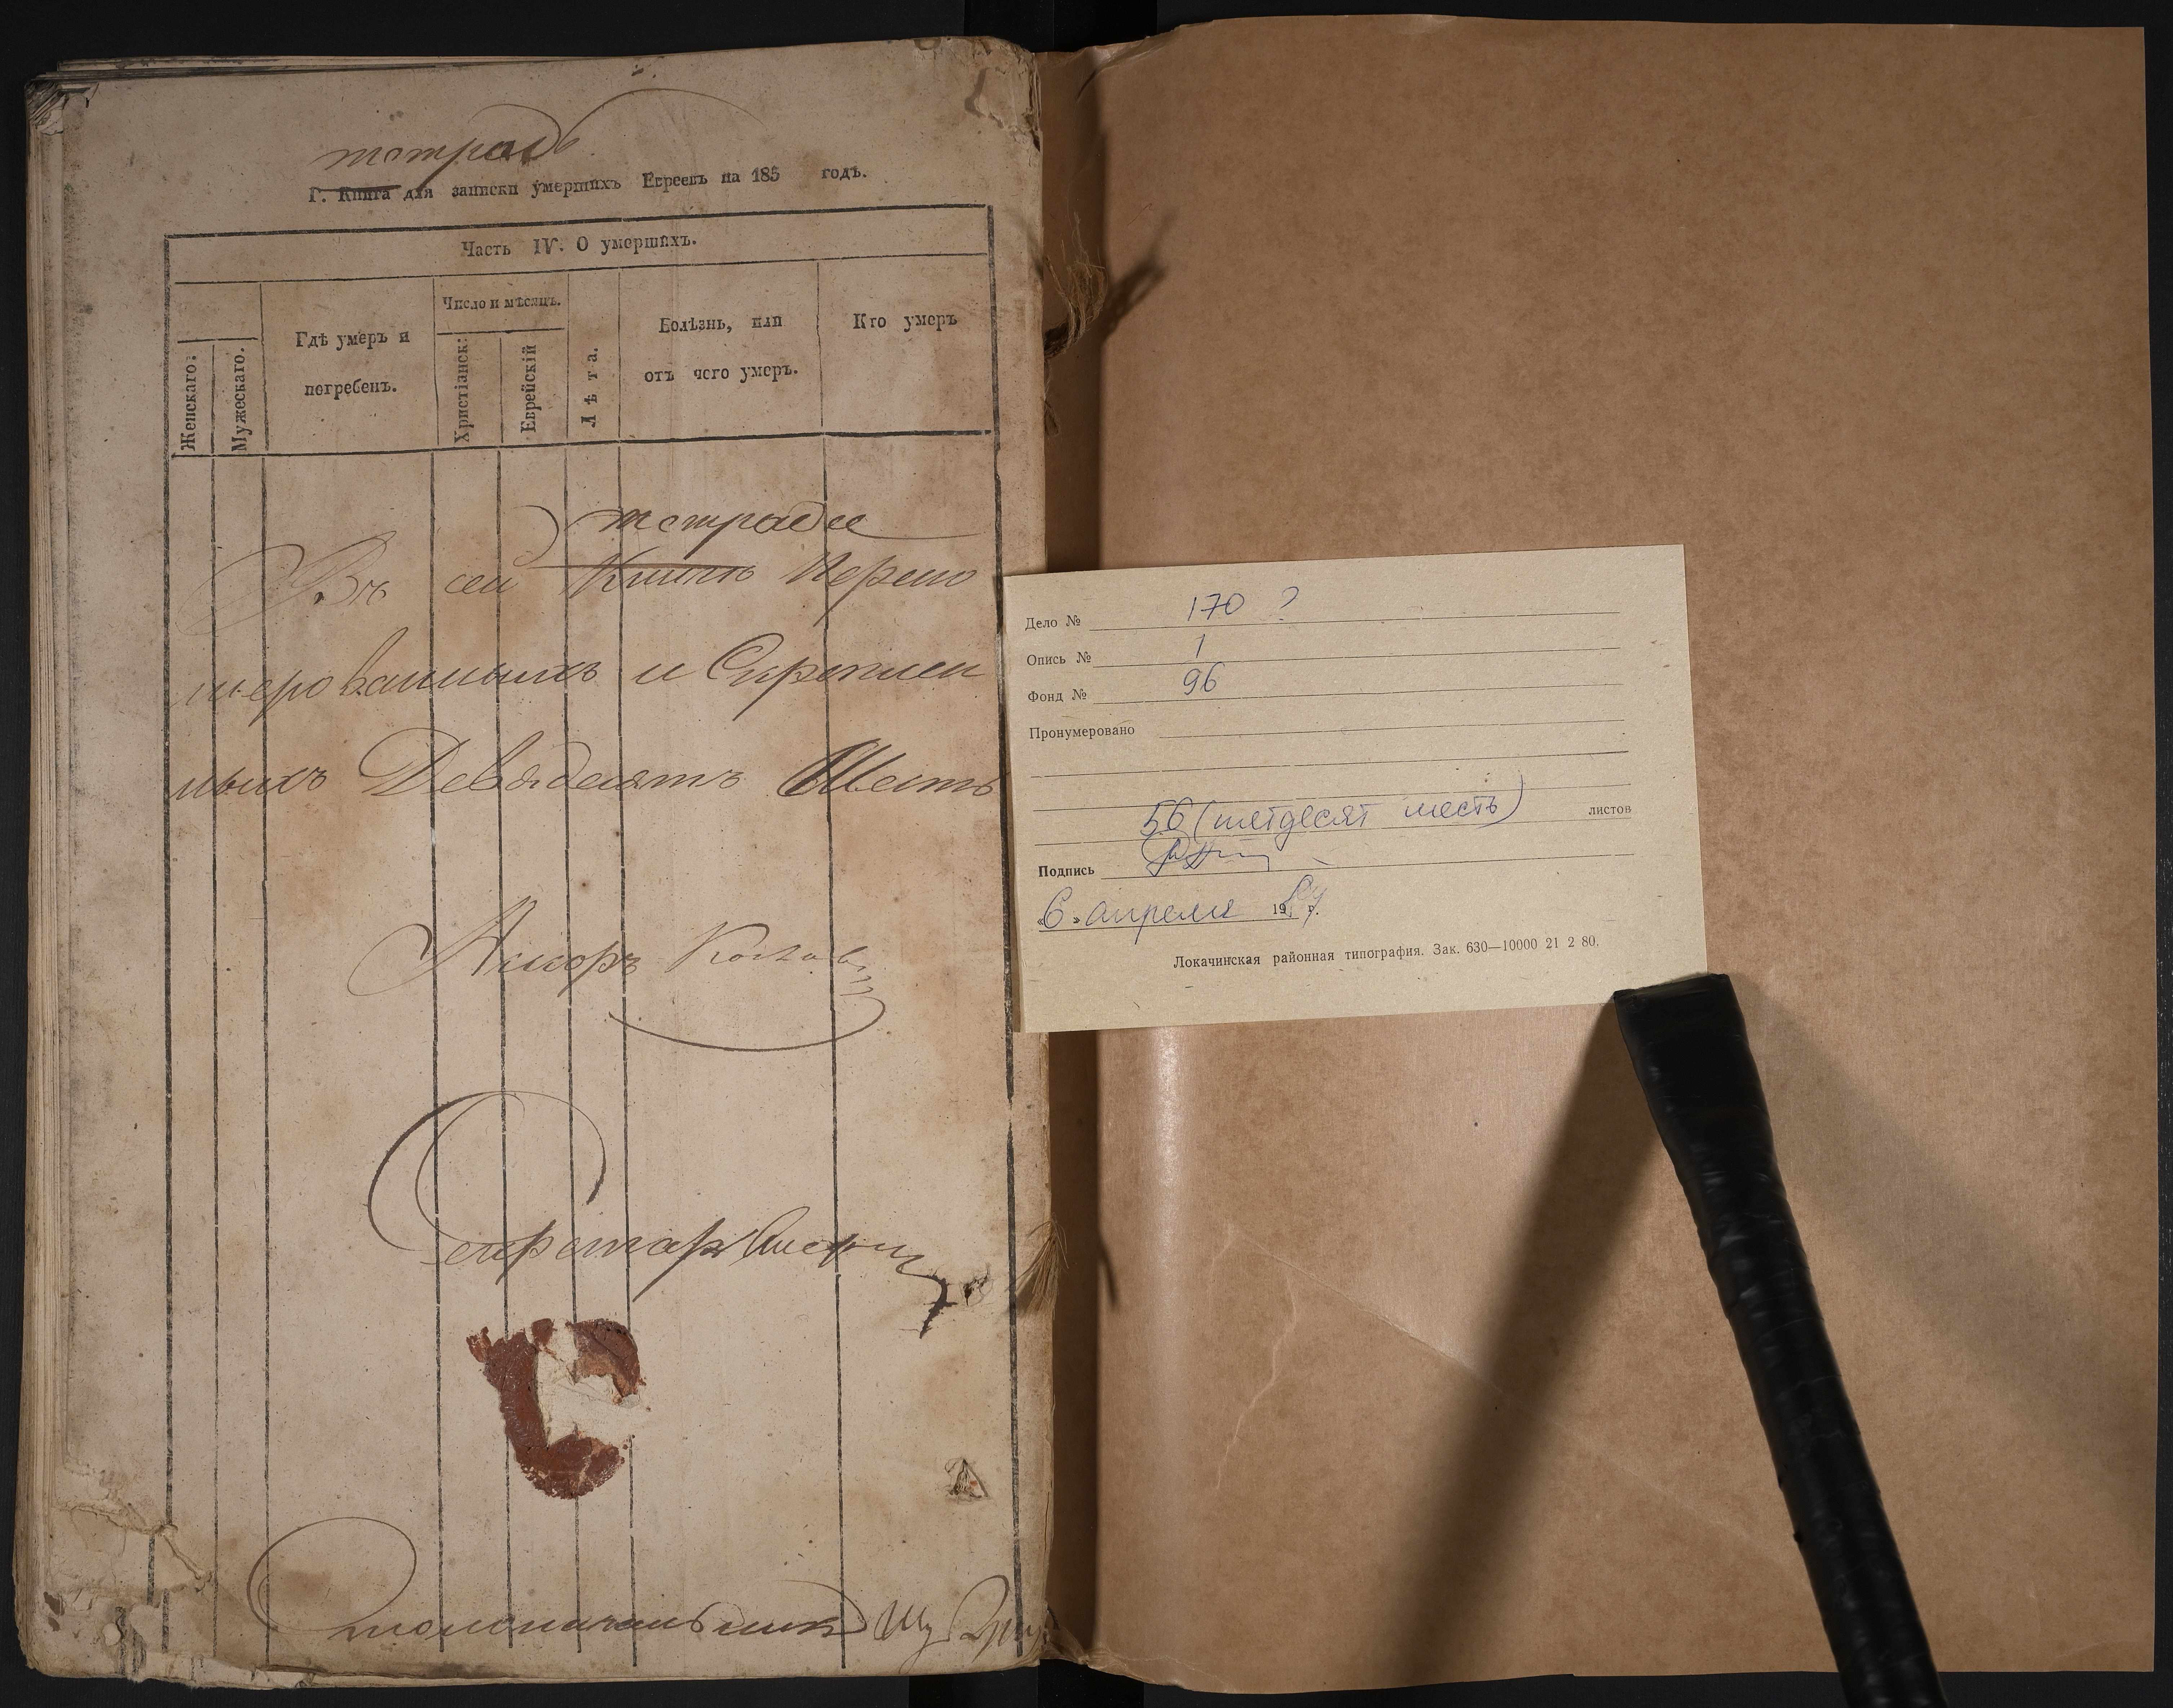 тетрадь
Г. Книга для записки умершихъ Евреевъ на 185 годъ.
Часть IV. О умершихъ.
Женскаго:
Мужескаго.
Гдѣ умеръ и
погребенъ.
Число и мѣсяцъ.
Христіанск:
Еврейскій
Лѣта.
Болѣзнь, или
отъ чего умеръ.
Кто умеръ
тетраде
Въ сей Книгѣ Нерено
мерованныхъ и Скреплен
ныхъ Девядесятъ Шесть
Секретарь
Столоначальникъ
Дело № 170 ?
Опись № 1
Фонд № 96
Пронумеровано
56 (пятдесят шесть) листов
Подпись
«6» апреля 19 г.
Локачинская районная типография. Зак. 630—10000 21 2 80.